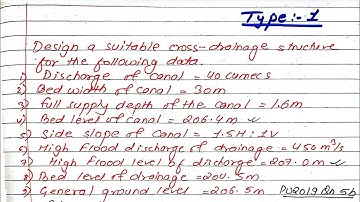 Type:- 1
Design a suitable cross-drainage structure
for the following data.
1) Discharge of canal = 40 cumecs
2) Bed width of canal = 30m
3) full supply depth of the canal = 1.6m
4) Bed level of canal = 206.4m ✓
5) Side slope of canal = 1.5H:1V
6) High flood discharge of drainage = 450 m³/s
7) High flood level of discharge = 207.0m ✓
8) Bed level of drainage = 204.5m
9) General ground level = 206.5m PU2019 Qn 5b